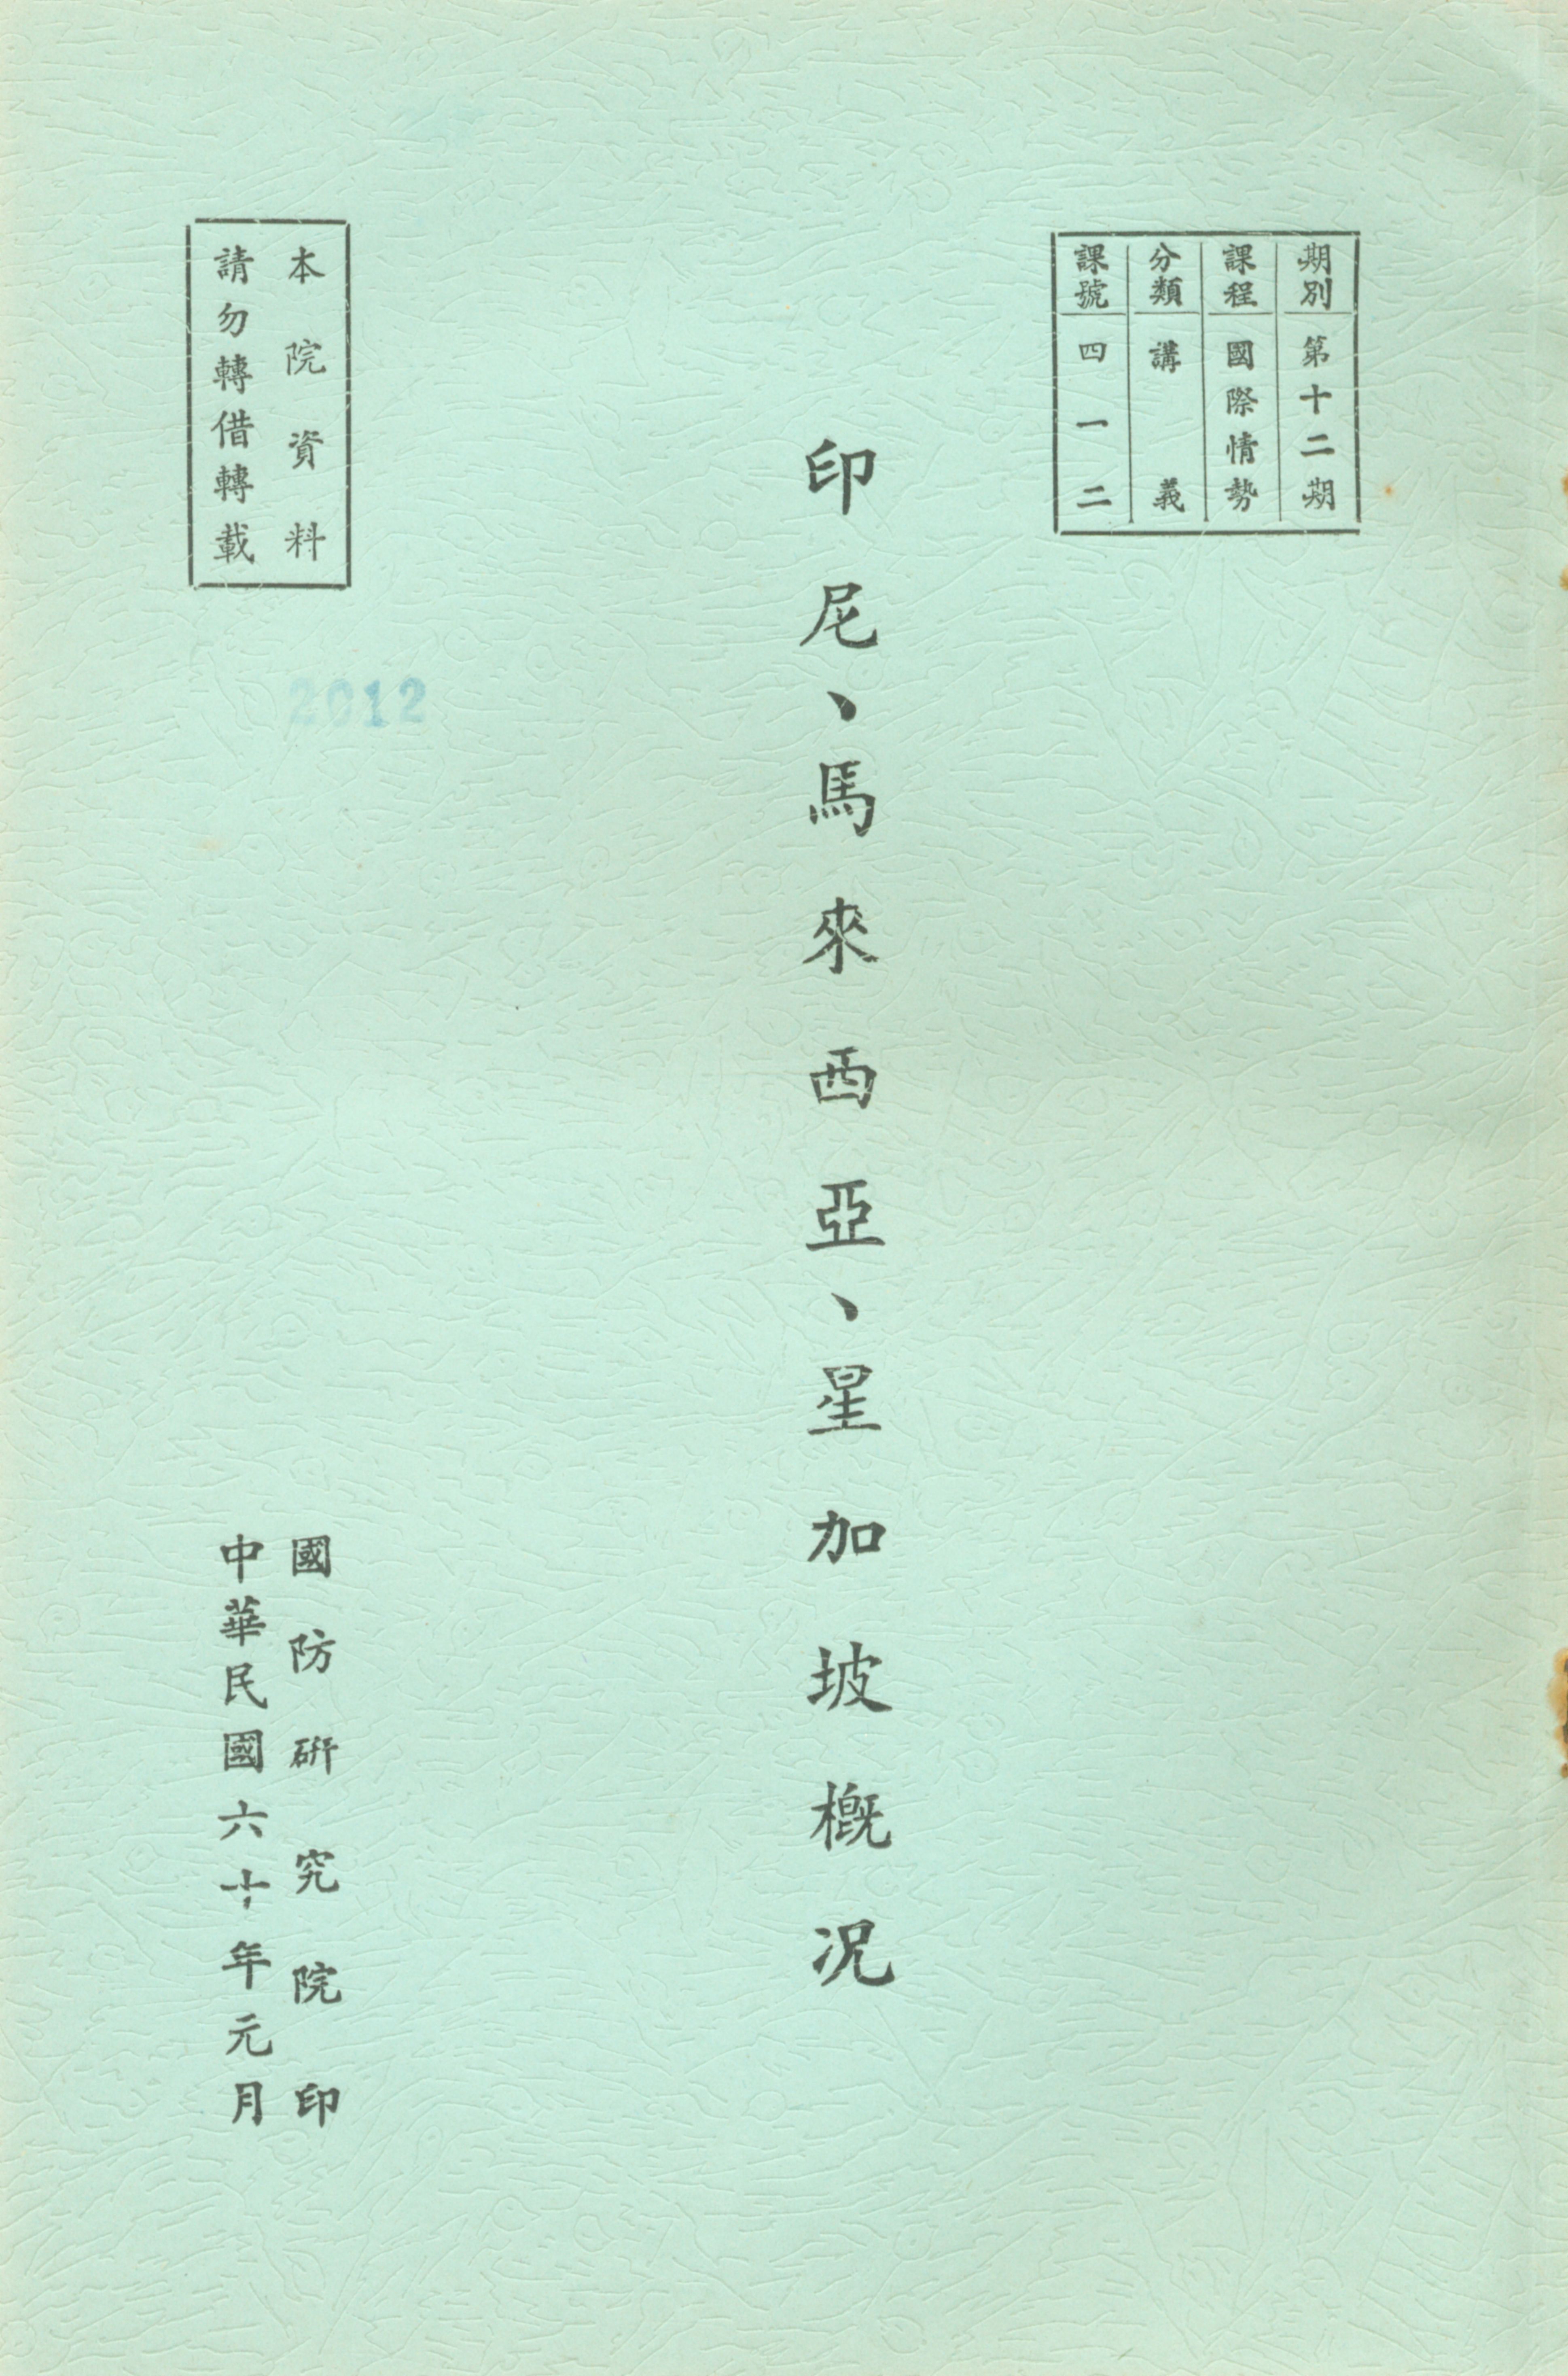 期別 第十二期
課程 國際情勢
分類 講義
課號 四一二
印尼、馬來西亞、星加坡概况
本院資料
請勿轉借轉載
2012
國防研究院印
中華民國六十年元月